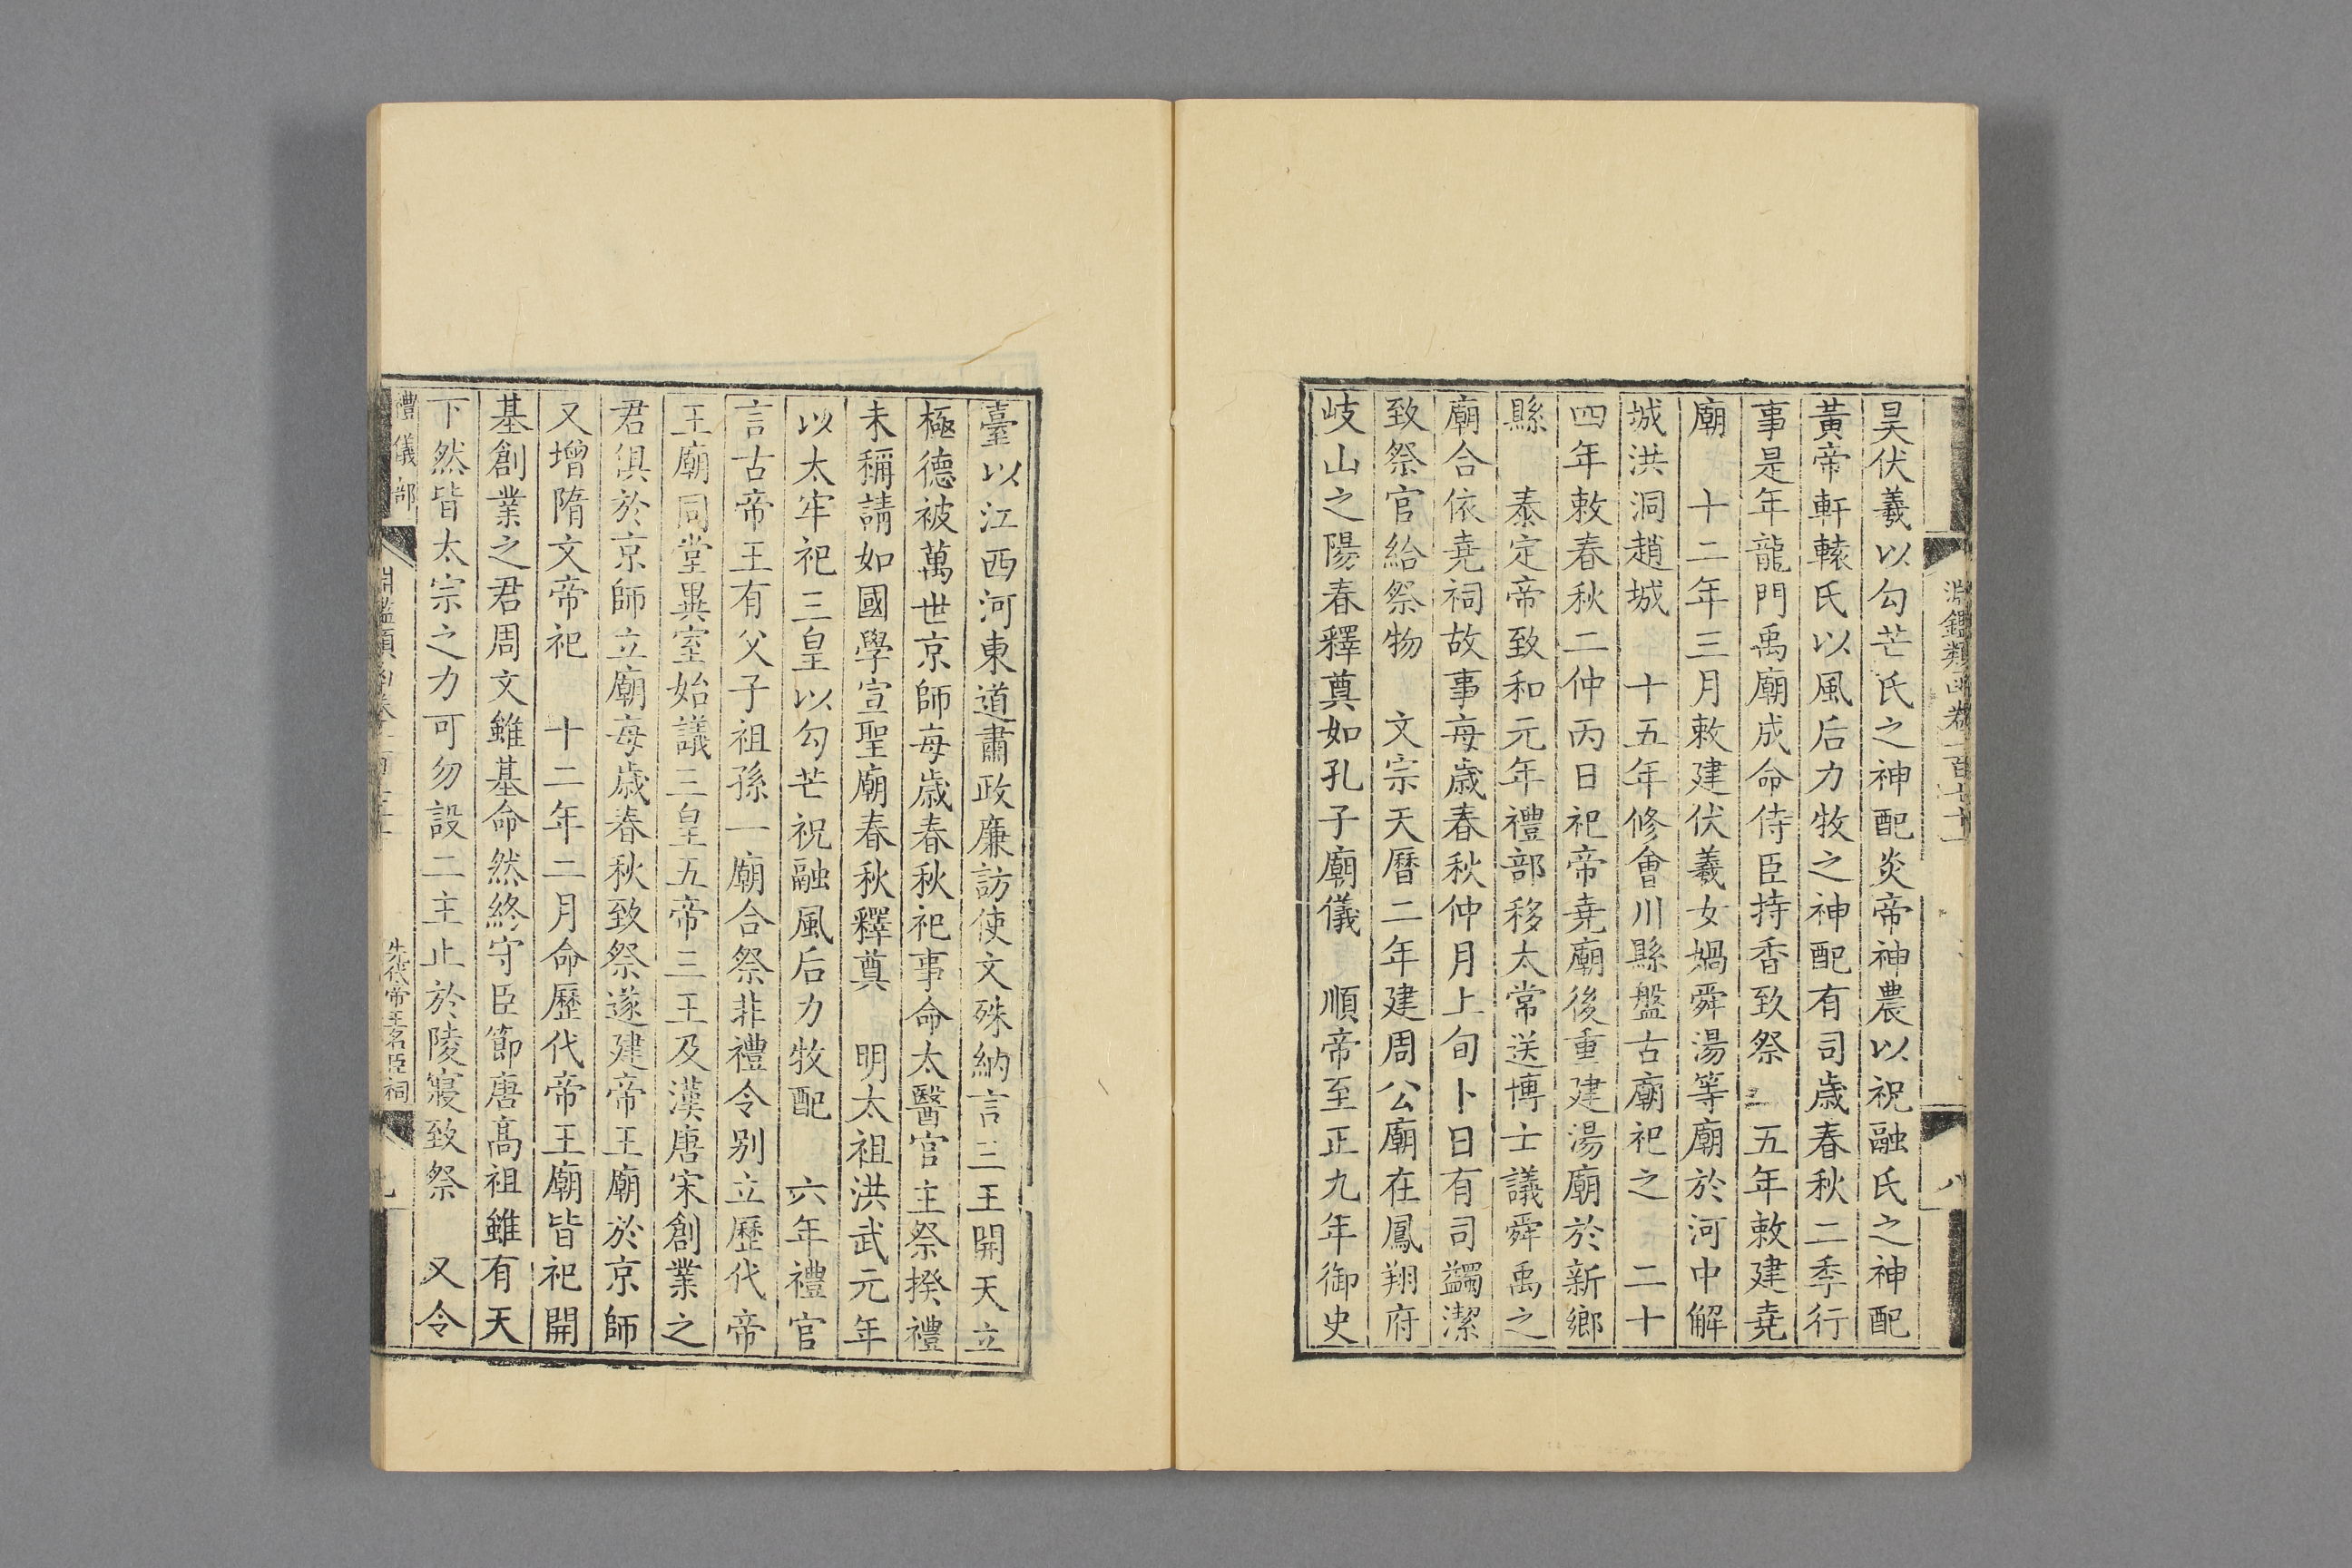 淵鑑類函卷一百七十一
八
昊伏羲以勾芒氏之神配炎帝神農以祝融氏之神配
黃帝軒轅氏以風后力牧之神配有司歲春秋二季行
事是年龍門禹廟成命侍臣持香致祭 五年敕建堯
廟 十二年三月敕建伏羲女媧舜湯等廟於河中解
城洪洞趙城 十五年修會川縣盤古廟祀之 二十
四年敕春秋二仲丙日祀帝堯廟後重建湯廟於新鄉
縣 泰定帝致和元年禮部移太常送博士議舜禹之
廟合依堯祠故事每歲春秋仲月上旬卜日有司蠲潔
致祭官給祭物 文宗天曆二年建周公廟在鳳翔府
岐山之陽春釋奠如孔子廟儀 順帝至正九年御史
臺以江西河東道肅政廉訪使文殊納言三王開天立
極德被萬世京師每歲春秋祀事命太醫官主祭揆禮
未稱請如國學宣聖廟春秋釋奠 明太祖洪武元年
以太牢祀三皇以勾芒祝融風后力牧配 六年禮官
言古帝王有父子祖孫一廟合祭非禮令別立歷代帝
王廟同堂異室始議三皇五帝三王及漢唐宋創業之
君俱於京師立廟每歲春秋致祭遂建帝王廟於京師
又增隋文帝祀 十二年二月命歷代帝王廟皆祀開
基創業之君周文雖基命然終守臣節唐高祖雖有天
下然皆太宗之力可勿設二主止於陵寢致祭 又令
禮儀部
先代帝王名臣祠